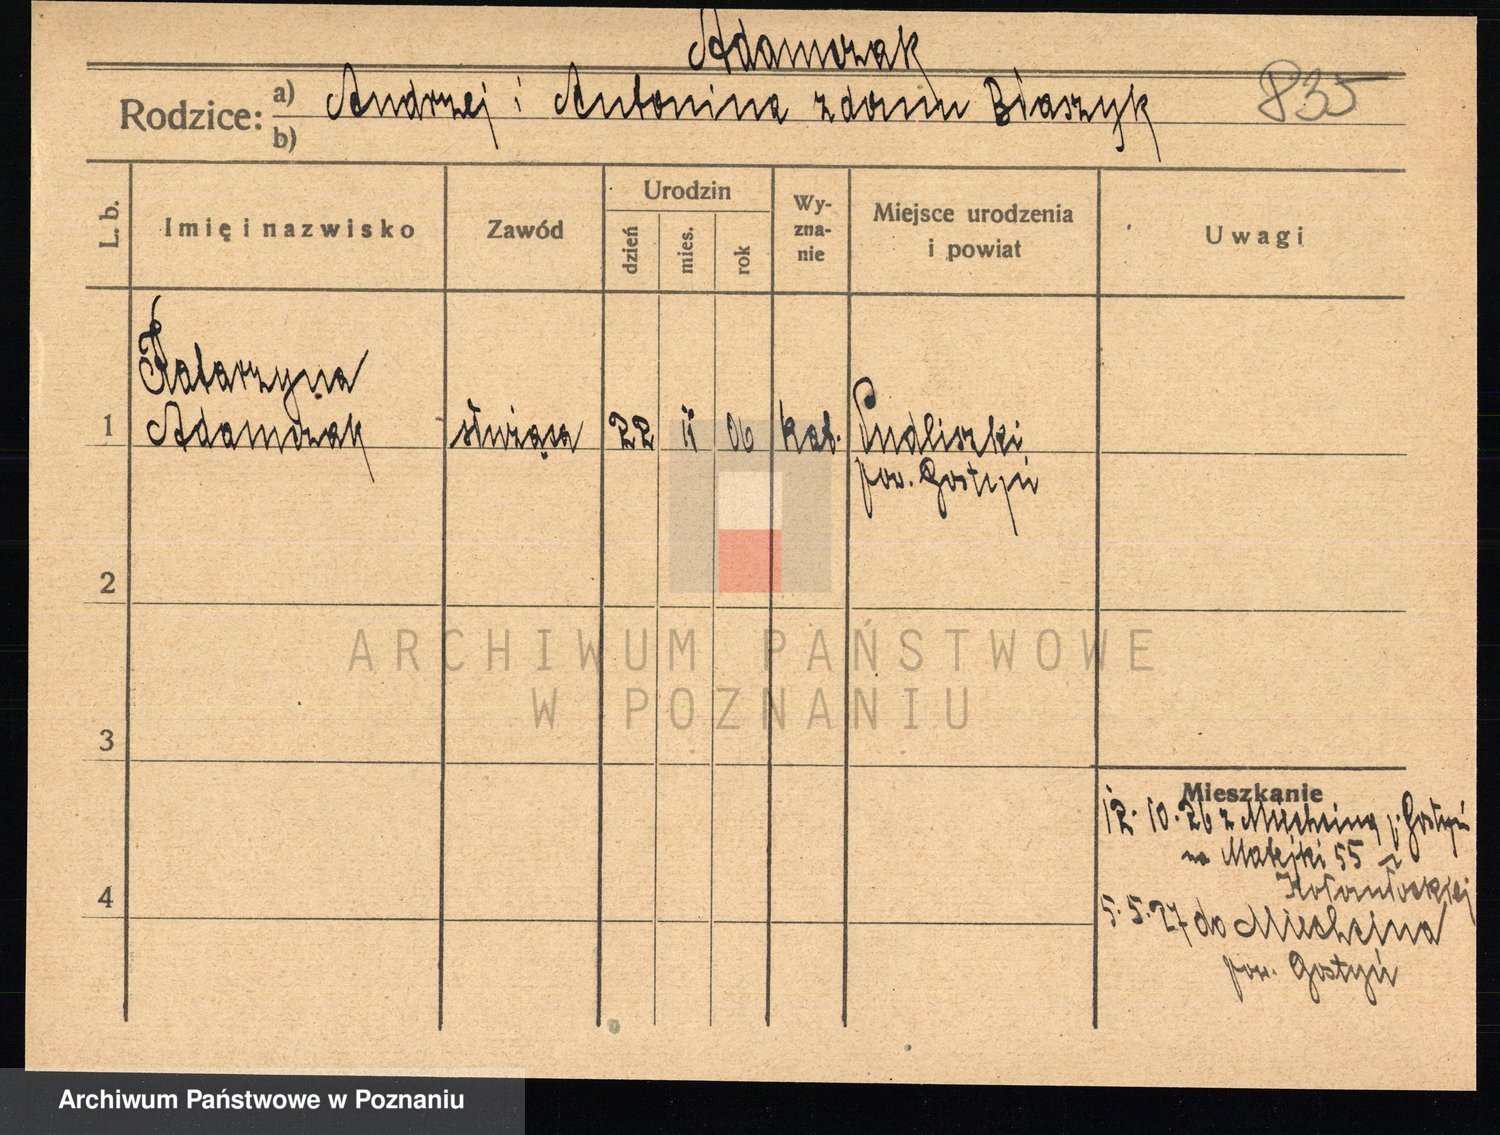 Adamczak
Rodzice: a) Andrzej i Antonina z domu Błaszyk
b)
835
L. b.
Imię i nazwisko
Zawód
Urodzin
dzień
mies.
rok
Wy-
zna-
nie
Miejsce urodzenia
i powiat
Uwagi
Katarzyna
1 Adamczak służąca 22 II 06 kat. Pudliszki
pow. Gostyń
2
3
4
ARCHIWUM PAŃSTWOWE
W POZNANIU
Mieszkanie
12. 10. 26 z p. Gostyń
na Matejki 55
5. 5. 27 do
pow. Gostyń
Archiwum Państwowe w Poznaniu